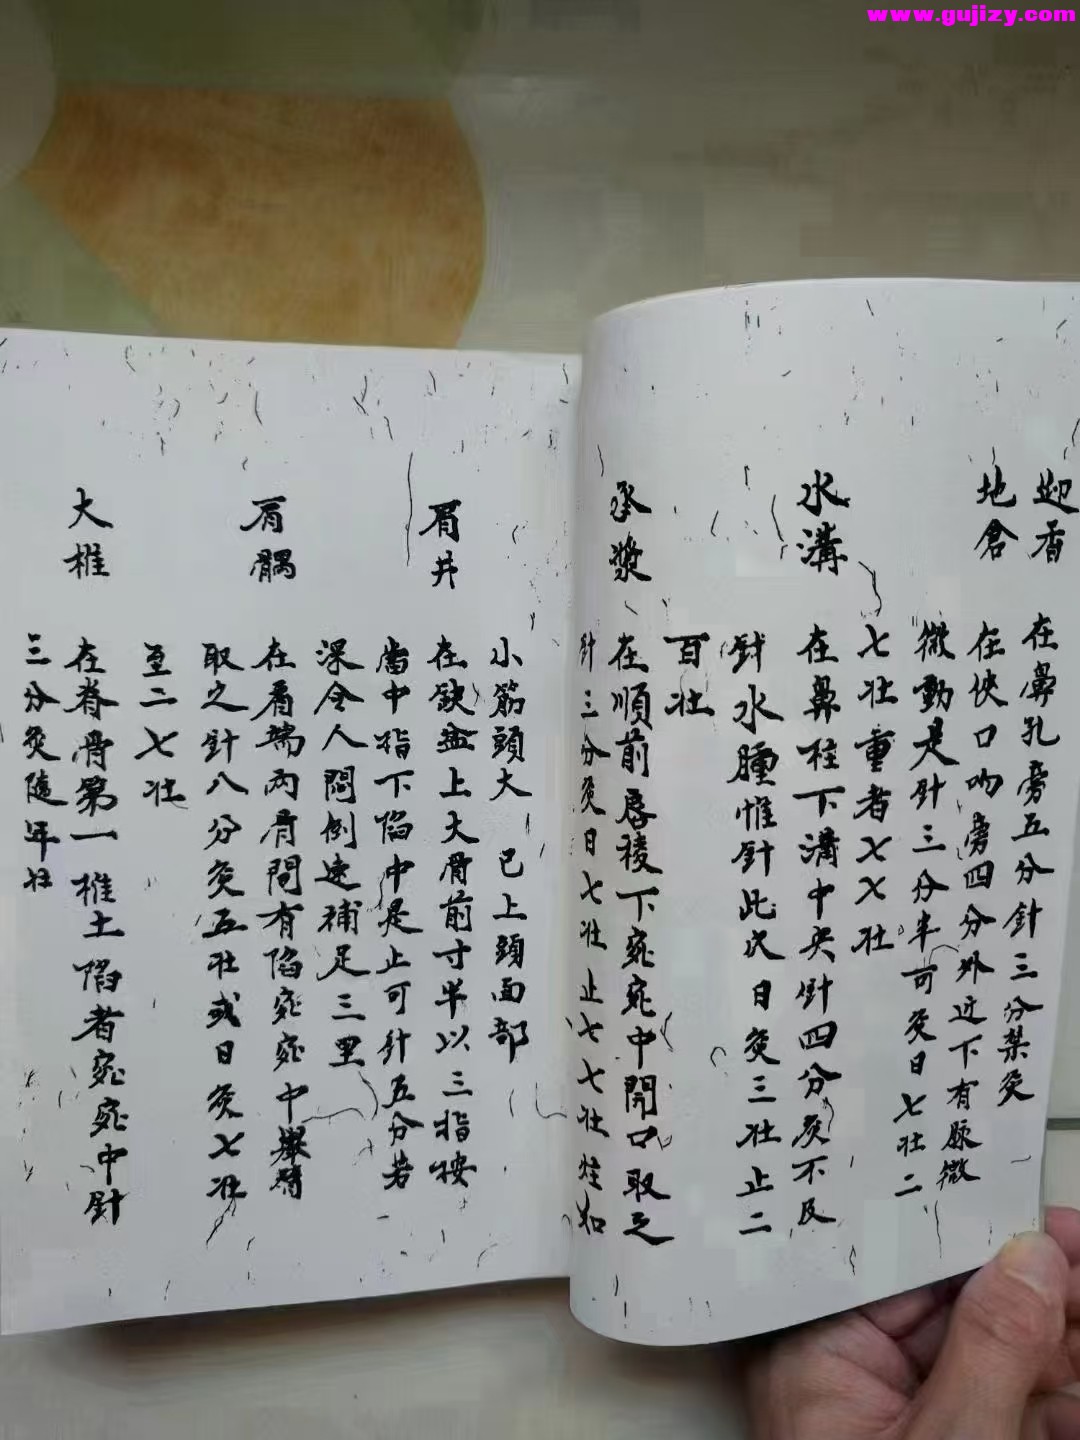 www.gujizy.com
迎香
在鼻孔旁五分針三分禁灸
地倉
在俠口吻旁四分外近下有脉微
微動是針三分半可灸日七壮二
七壮重者七七壮
水溝
在鼻柱下溝中央針四分灸不及
針水腫惟針此穴日灸三壮止二
百壮
承漿
在順前唇稜下宛宛中開口取之
針三分灸日七壮止七七壮炷如
小筋頭大 已上頭面部
肩井
在缺盆上大骨前寸半以三指按
當中指下陷中是止可針五分若
深令人悶倒速補足三里
肩髃
在肩端兩骨間有陷宛宛中舉臂
取之針八分灸五壮或日灸七壮
至二七壮
大椎
在脊骨第一椎土陷者宛宛中針
三分灸隨年壮